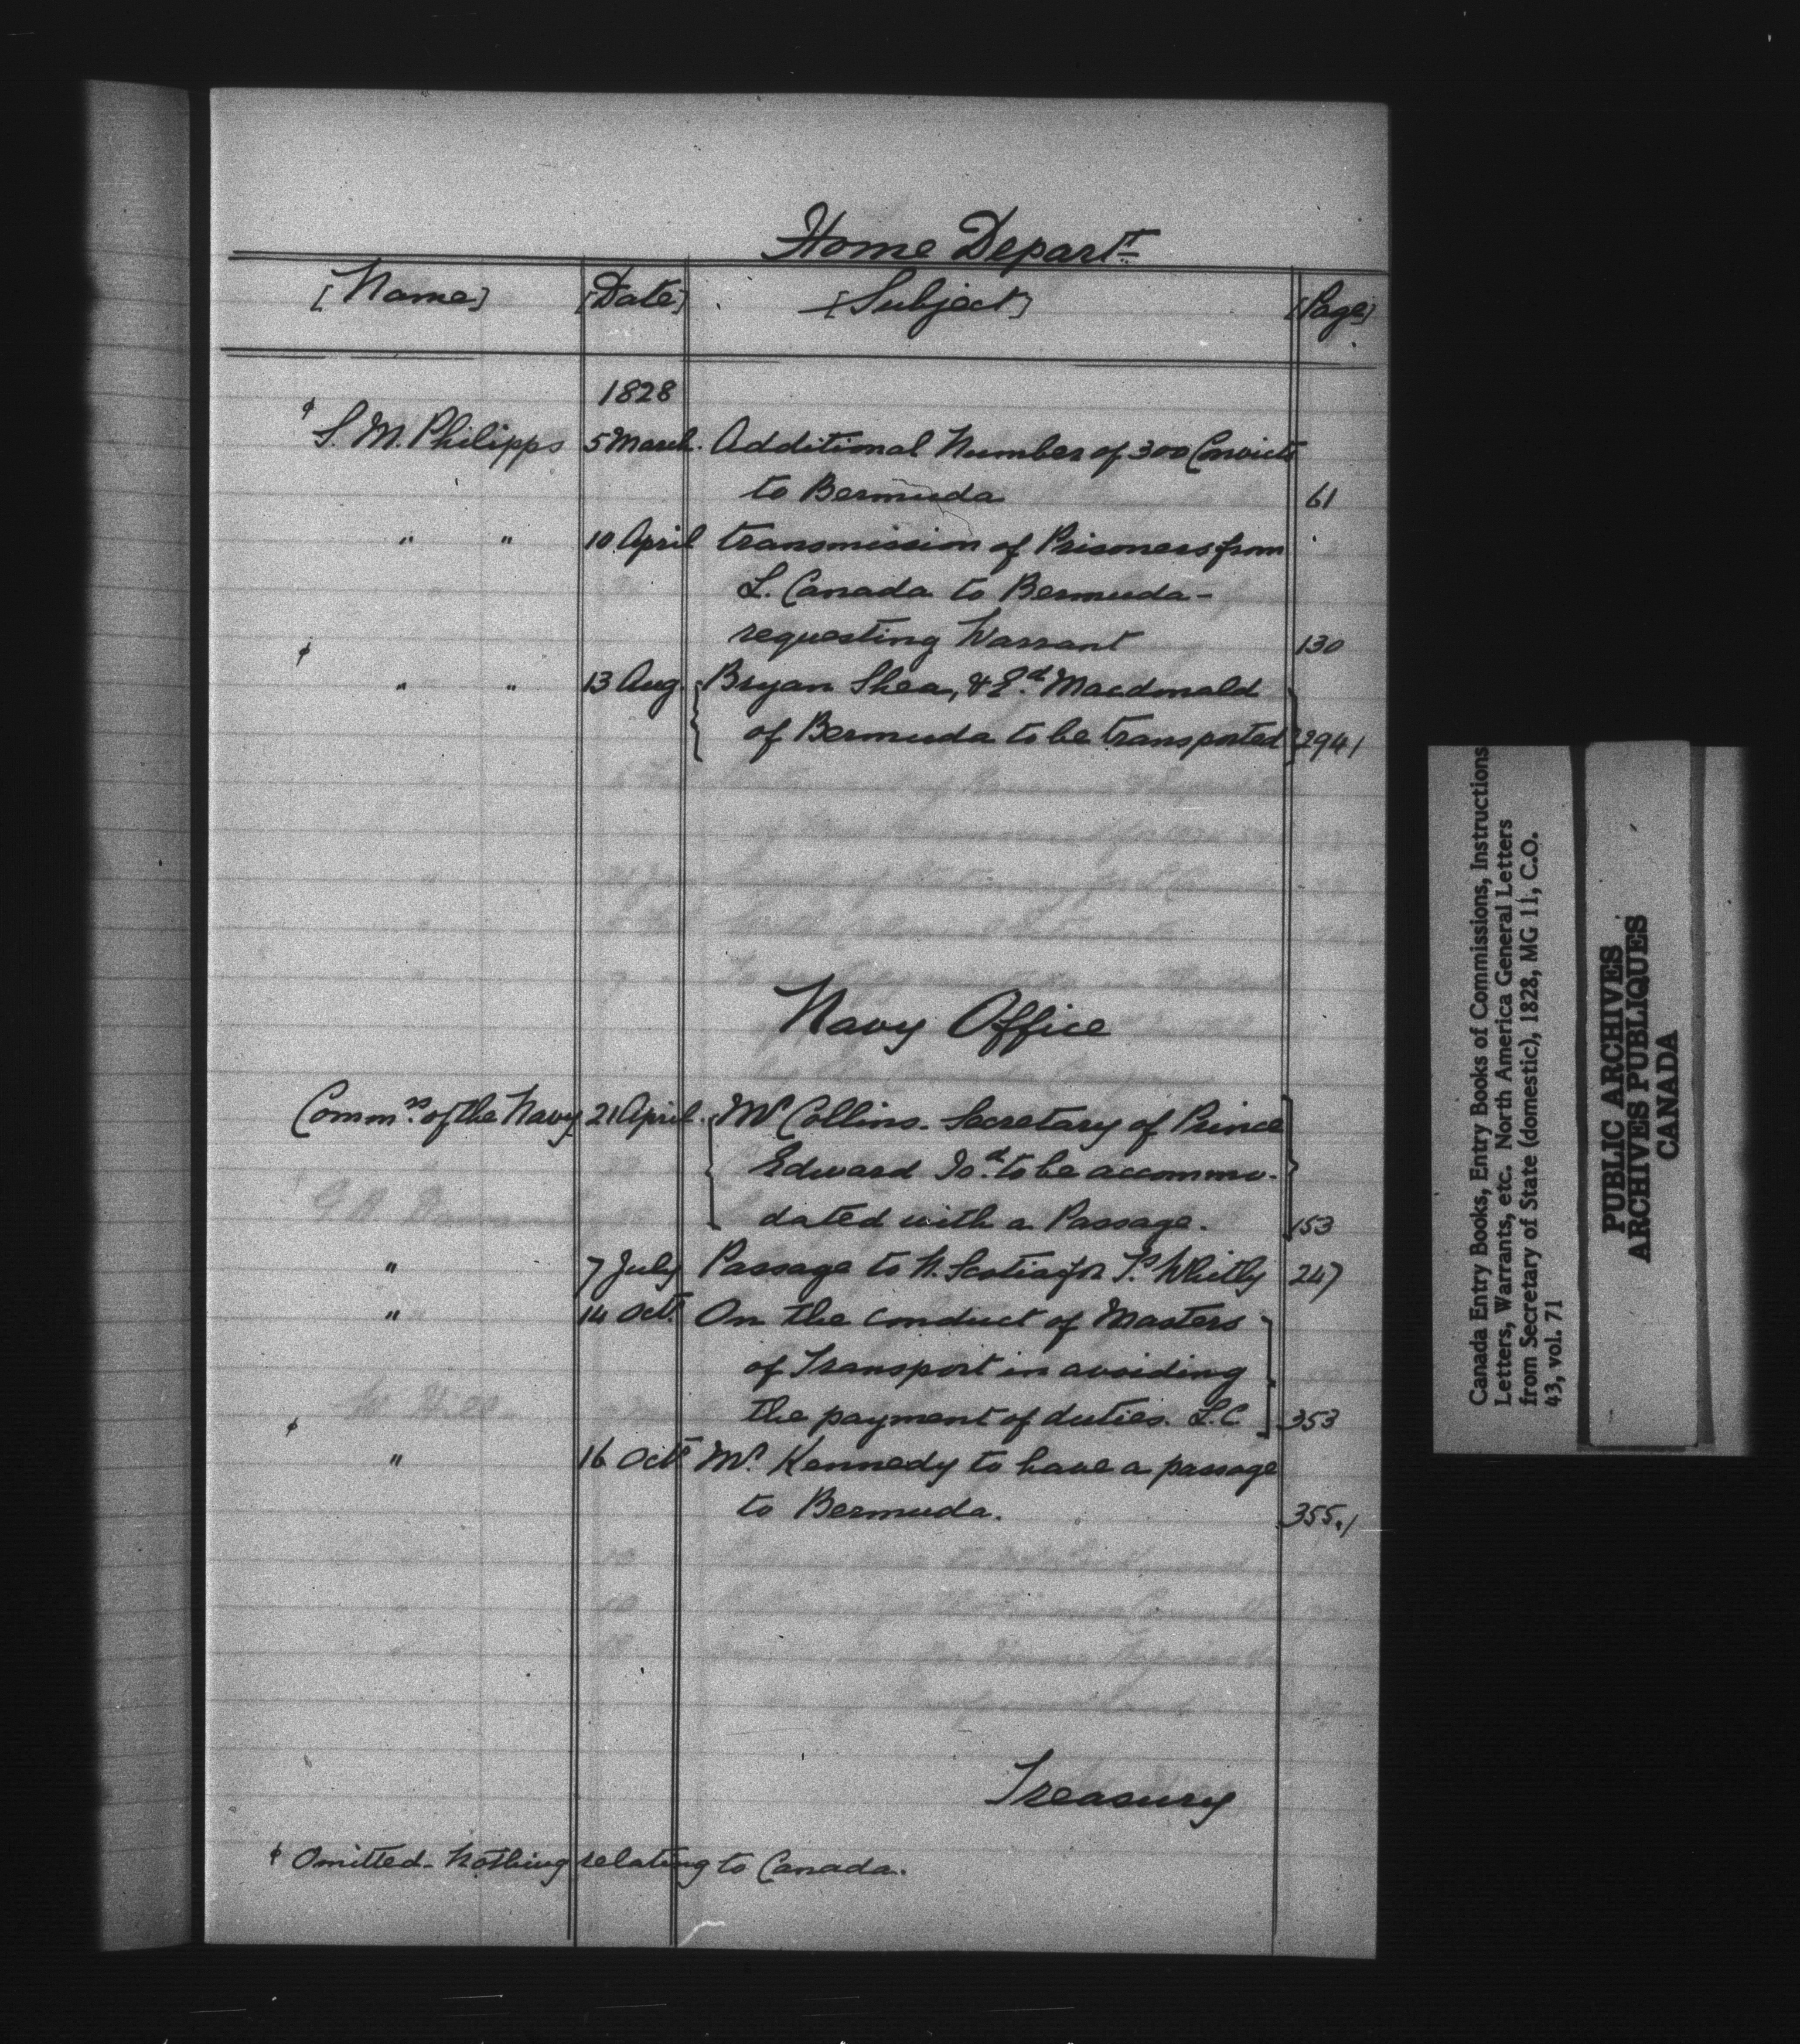 Home Depart.t
[Name] [Date] [Subject] [Page]
1828
ϕ
S. M. Philipps 5 March. Additional Number of 300 Convicts
to Bermuda 61
" " 10 April transmission of Prisoners from
L. Canada to Bermuda -
requesting Warrant 130
ϕ
" " 13 Aug. { Bryan Shea, & E.d Macdonald
of Bermuda to be transported } 294 /
Navy Office
Comm.rs of the Navy 21 April. { Mr Collins. Secretary of Prince
Edward Is.d to be accommo-
dated with a Passage. } 153
" 7 July Passage to N. Scotia for Whitly 247
" 14 Oct.r On the conduct of Masters
of Transport in avoiding
the payment of duties. L.C. ] 353
ϕ
" 16 Oct.r Mr. Kennedy to have a passage
to Bermuda. 355. /
Treasury
ϕ Omitted - Nothing relating to Canada.
Canada Entry Books, Entry Books of Commissions, Instructions
Letters, Warrants, etc. North America General Letters
from Secretary of State (domestic), 1828, MG 11, C.O.
43, vol. 71
PUBLIC ARCHIVES
ARCHIVES PUBLIQUES
CANADA